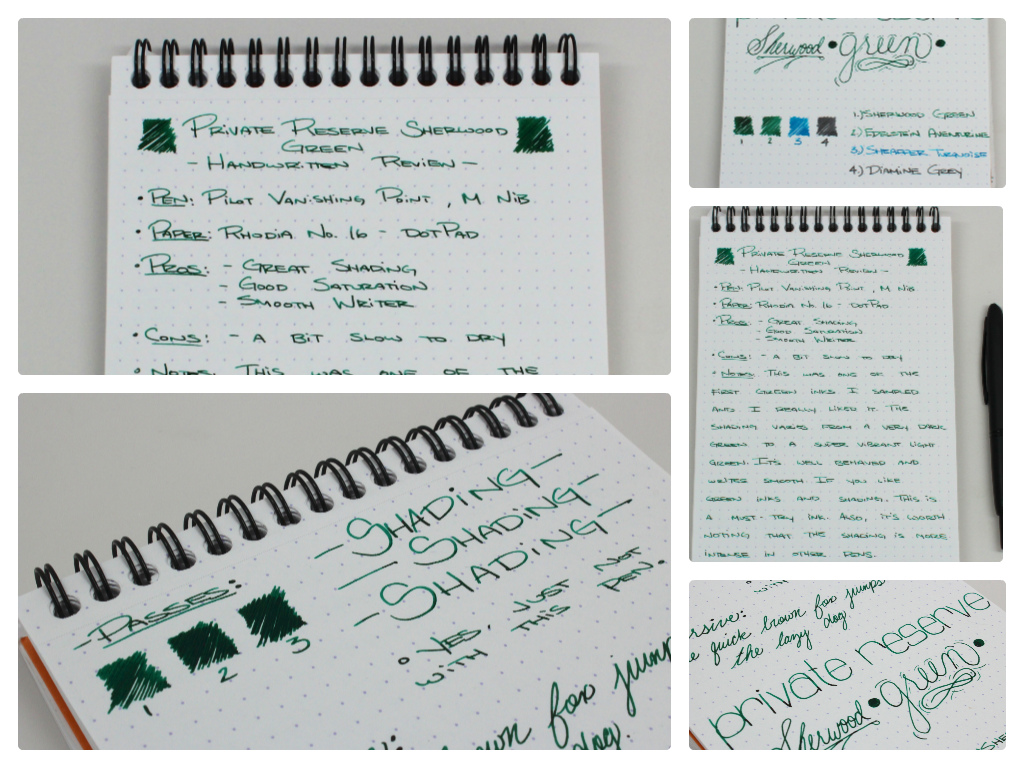 Private Reserve Sherwood
Green
- Handwritten Review -
• Pen: Pilot Vanishing Point, M Nib
• Paper: Rhodia No. 16 - DotPad
• Pros: - Great Shading
- Good Saturation
- Smooth Writer
• Cons: - A bit slow to dry
• Notes: This was one of the
Sherwood • green •
1 2 3 4
1.) Sherwood Green
2.) Edelstein Aventurine
3.) Sheaffer Turquoise
4.) Diamine Grey
Private Reserve Sherwood
Green
- Handwritten Review -
• Pen: Pilot Vanishing Point, M Nib
• Paper: Rhodia No. 16 - DotPad
• Pros: - Great Shading
- Good Saturation
- Smooth Writer
• Cons: - A bit slow to dry
• Notes: This was one of the
first green inks I sampled
and I really liked it. The
shading varies from a very dark
green to a super vibrant light
green. It's well behaved and
writes smooth. If you like
green inks and shading, this is
a must-try ink. Also, it's worth
noting that the shading is more
intense in other pens.
- Shading -
- Shading -
- Shading -
- Passes:
1 2 3
• Yes, just not
with this pen.
own fox jump
dog.
rsive:
e quick brown fox jumps
the lazy dog
private reserve
Sherwood • green •